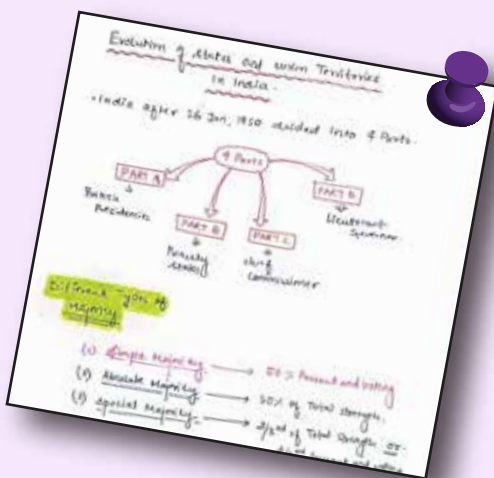 Evolution of States and union Territories
in India.
• India after 26 Jan, 1950 divided into 4 Parts.
4 Parts
PART A
British
Presidencies
PART B
Princely
States
PART C
Chief
Commissioner
PART D
Lieutenant
Governor
Different Types of
Majority
(1) Simple Majority → 50% Present and voting
Absolute Majority → 50% of Total strength.
Special Majority → 2/3rd of Total Strength or
present and voting